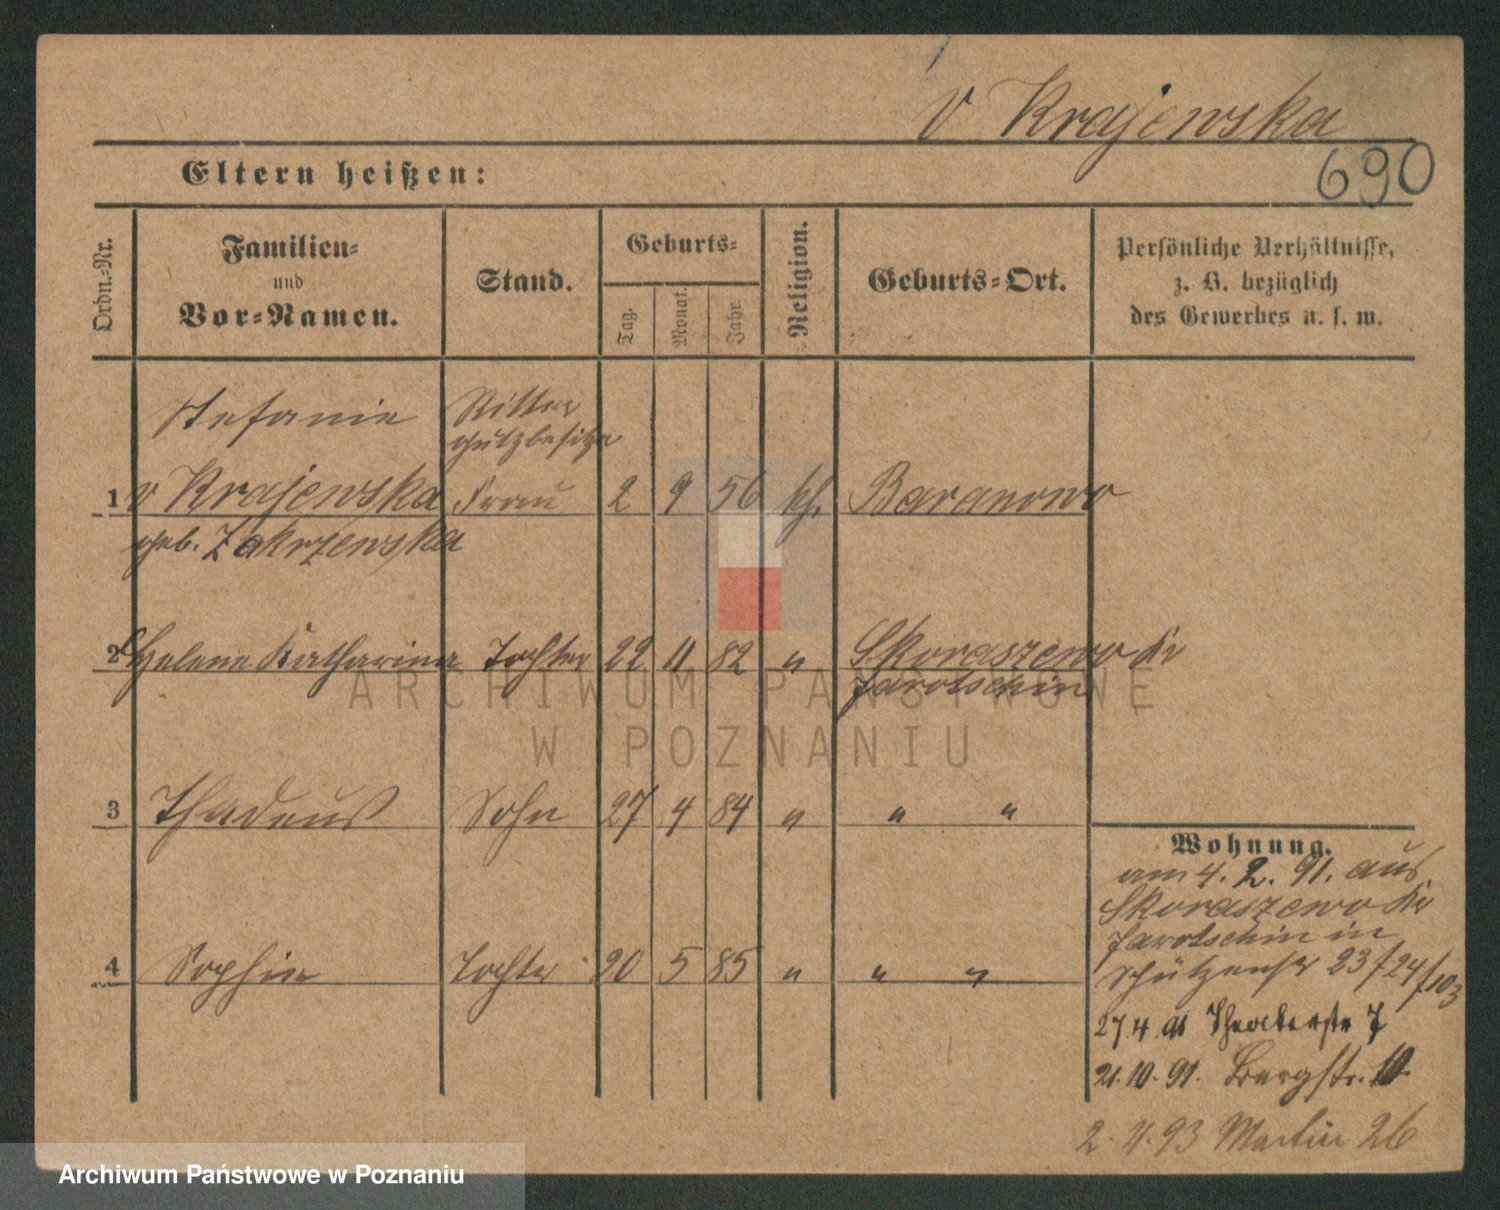 v Krajewska
690
Eltern heißen:
Ordn.-Nr.
Familien-
und
Vor-Namen.
Stand.
Geburts-
Tag.
Monat.
Jahr.
Religion.
Geburts-Ort.
Persönliche Verhältnisse,
z. B. bezüglich
des Gewerbes u. s. w.
Stefanie Ritter
gutzbesitzer
1 v Krajewska Frau 2 9 56 kth. Baranowo
geb. Zakrzewska
2 Helene Katharina Tochter 22 11 82 " Skoraszewo Kr
Jarotschin
3 Thadeus Sohn 27 4 84 " " "
4 Sophie Tochter 20 5 85 " " "
Wohnung.
am 4. 2. 91. aus
Skoraszewo Kr
Jarotschin in
Schützenstr 23/24/103
27.4.91 Theaterstr 7
21.10.91. Bergstr. 10
2.11.93 Martin 26
ARCHIWUM PAŃSTWOWE
W POZNANIU
Archiwum Państwowe w Poznaniu